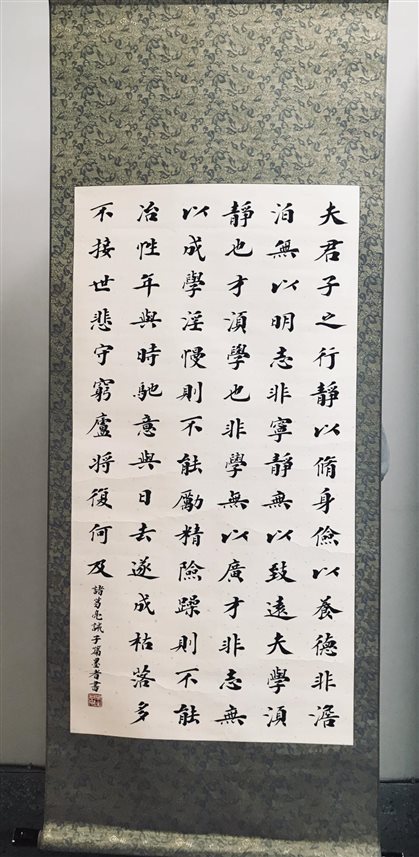 夫君子之行靜以脩身儉以養德非澹
泊無以明志非寧靜無以致遠夫學須
靜也才須學也非學無以廣才非志無
以成學淫慢則不能勵精險躁則不能
冶性年與時馳意與日去遂成枯落多
不接世悲守窮廬將復何及
諸葛亮誡子篇墨者書